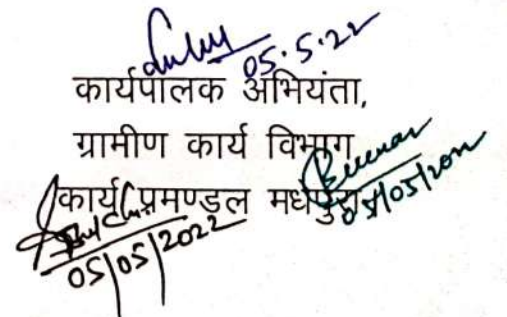 05.5.22
कार्यपालक अभियंता,
ग्रामीण कार्य विभाग
कार्य प्रमण्डल मधेपुरा
05/05/2022
05/05/2022